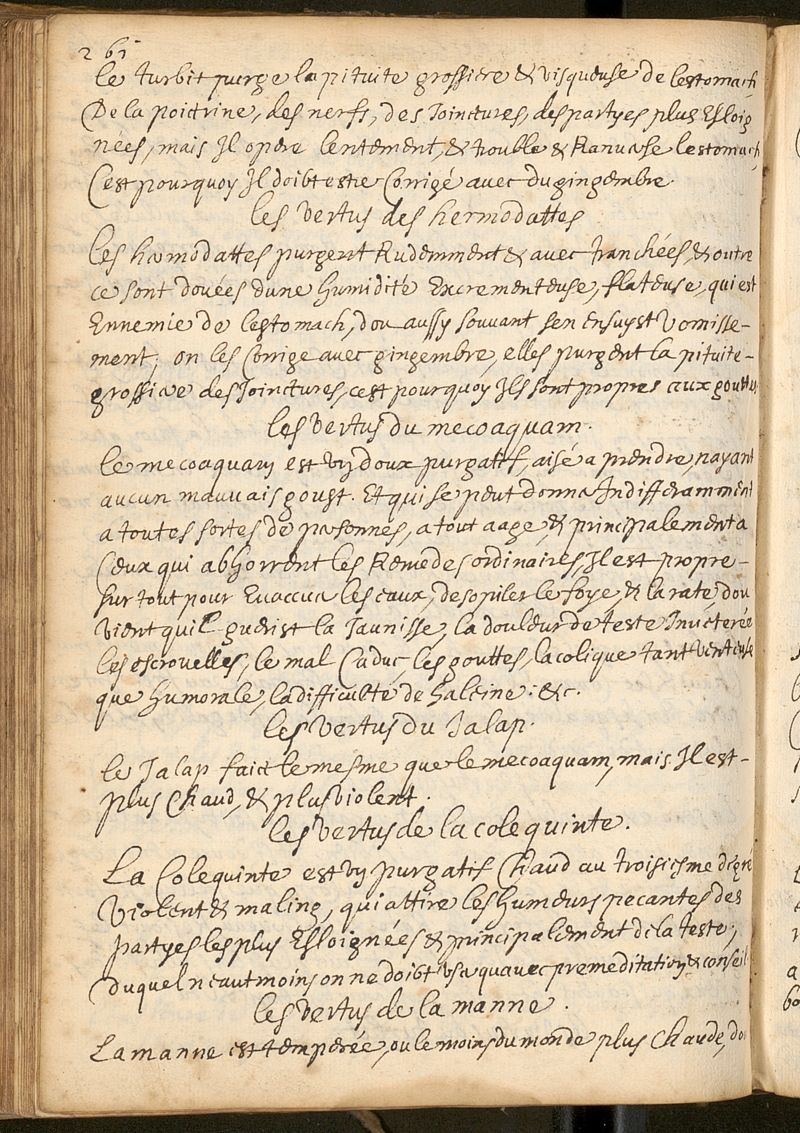 261
le turbit purge la pituite grossiere & visqueuse de lestomach
De la poictrine, des nerfs, des Joinctures, des partyes plus Esloig
nées, mais Il opere lentement, & trouble & Ranverse lestomach
Cest pourquoy Il doibt estre Corrigé avec du gingembre
les vertus des hermodattes
les hermodattes purgent Rudemment & avec tranchées, & outre
ce sont douées dune humidité Excrementeuse, flateuse, qui est
Ennemie de lestomach, dou aussy souvant sen ensuyst vomisse-
ment, on les Corrige avec gingembre, elles purgent la pituite-
grossiere des Joinctures, cest pourquoy Ils sont propres aux gouttes
les vertus du mecoaquam.
le mecoaquam est vn doux purgatif, aisé a prendre, nayant
aucun mauvais goust. Et qui se peut donner Indifferamment
a toutes sortes de personnes, a tout aage, & principalement a
Ceux qui abhorrent les Remedes ordinaires, Il est propre-
sur tout pour Euaccuer les eaux, desopiler le foye, & la rate, dou
vient quil guerist la Jaunisse, la douleur de teste Inueterée
les escrouelles, le mal Caduc, les gouttes, la colique tant venteuse
que humorale, la difficulté de haleine. &c.
les vertus du Jalap.
le Jalap faict le mesme que le mecoaquam, mais Il est-
plus Chaud, & plus violent.
les vertus de la colequinte.
La Colequinte est vn purgatif Chaud au troisiesme degré
violent & maling, qui attire les humeurs pecantes des
partyes les plus Esloignées & principalement de la teste,
duquel neautmoins on ne doibt vser quauec premeditation & conseil
les vertus de la manne.
La manne est temperée, ou le moins du monde plus Chaude, dou